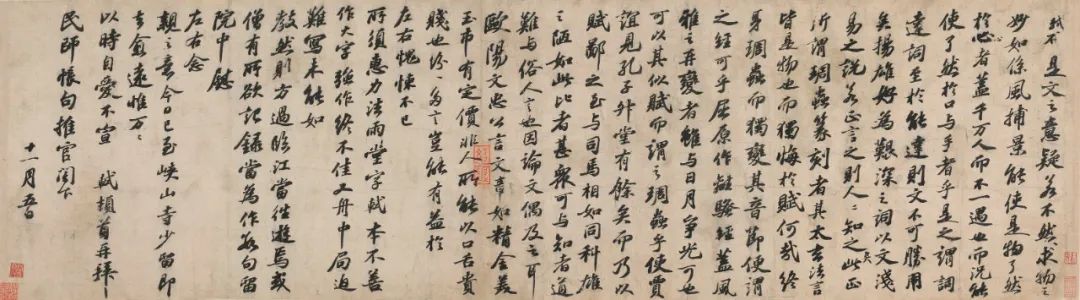 不是文之意疑若不然求物之
妙如係風捕景能使是物了然
於心者蓋千万人而不一遇也而況能
使了然於口與手者乎是之謂詞
達詞至於能達則文不可勝用
矣揚雄好為艱深之詞以文淺
易之說若正言之則人人知之此正
所謂琱蟲篆刻者其太玄法言
皆是物也而獨悔於賦何哉終
身琱蟲而獨變其音節便謂
之經可乎屈原作離騷經蓋風
雅之再變者雖與日月爭光可也
可以其似賦而謂之琱蟲乎使賈
誼見孔子升堂有餘矣而乃以
賦鄙之至與司馬相如同科雄
之陋如此比者甚衆可與知者道
難與俗人言也因論文偶及之耳
歐陽文忠公言文章如精金美
玉市有定價非人所能以口舌貴
賤也紛紛多言豈能有益於
左右愧悚不已
所須惠力法雨堂字軾本不善
作大字強作終不佳又舟中局迫
難寫未能如
教然則方過臨江當往遊焉或
僧有所欲記錄當為作數句留
院中慰
左右念
親之意今日已至峽山寺少留即
去愈遠惟万万
以時自愛不宣 軾頓首再拜
民師帳句推官閣下
十一月五日